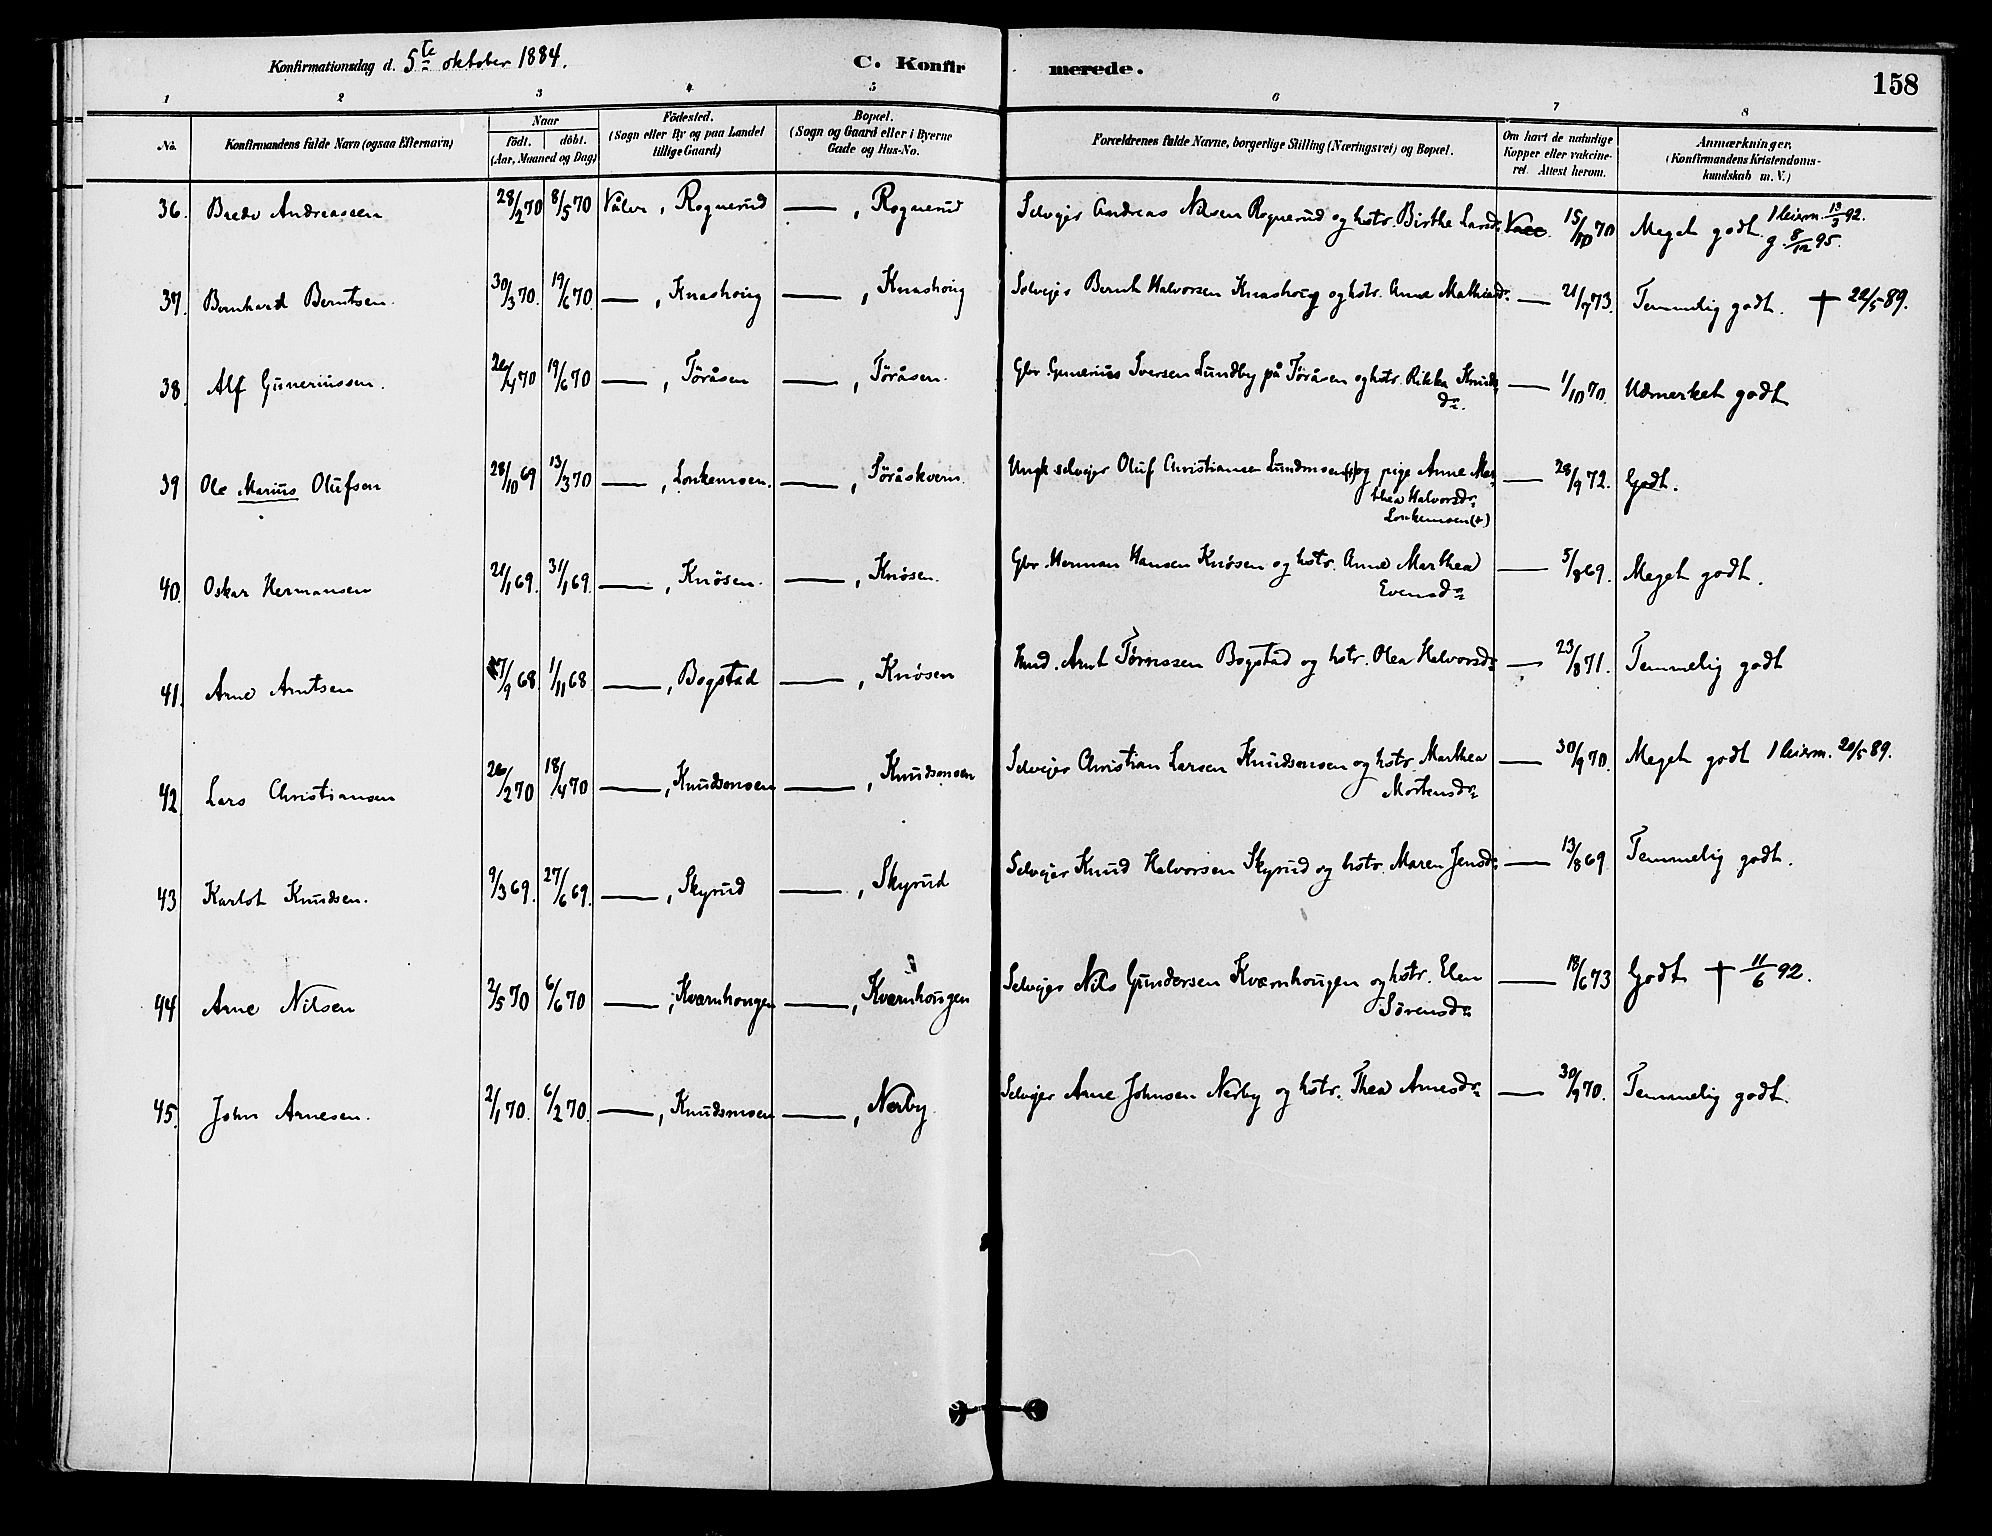 Konfirmationsdag d. 5te oktober 1884. C. Konfirmerede. 158
1 2 3 4 5 6 7 8
No. Konfirmandens fulde Navn (ogsaa Efternavn) Naar födt. döbt. (Aar, Maaned og Dag) Födested. (Sogn eller By og paa Landet tillige Gaard) Bopæl. (Sogn og Gaard eller i Byerne Gade og Hus-No. Forældrenes fulde Navne, borgerlige Stilling (Næringsvei) og Bopæl. Om havt de naturlige Kopper eller vakcineret. Attest herom. Anmærkninger. (Konfirmandens Kristendomskundskab m. V.)
36. Brede Andreassen 28/2 70 8/5 70 Våler, Rognerud —, Rognerud Selvejer Andreas Nilsen Rognerud og hstr. Birthe Larsdr. Vacc. 15/10 70 Meget godt. 1 leierm. 13/3 92. g. 8/12 95.
37. Bernhard Berntsen. 30/3 70. 19/6 70. —, Knashoug —, Knashoug Selvejer Bernt Halvorsen Knashoug og hstr. Anne Mathisdr. — 21/7 73. Temmelig godt. † 22/5 89.
38. Alf Gunerinssen. 26/4 70 19/6 70 —, Töråsen —, Töråsen. Gbr. Gunerius Iversen Lundby på Töråsen og hstr. Rikka Knudsdr. — 1/10 70. Udmerket godt
39 Ole Marius Olufsen 28/10 69 13/3 70 —, Lonkemoen. —, Töråskvern. Ungk. selvejer Oluf Christiansen Lundmoen (†) og pige Anne Marthea Halvorsdr. Lonkemoen (†) — 28/9 72. Godt.
40. Oskar Hermansen 21/1 69. 31/1 69. —, Knösen. —, Knösen. Gbr. Herman Hansen Knösen og hstr. Anne Marthea Evensdr. — 5/8 69. Meget godt.
41. Arne Arntsen 17/9 68. 1/11 68 —, Bogstad —, Knösen Hmd. Arnt Törrissen Bogstad og hstr. Olea Halvorsdr. — 23/8 71. Temmelig godt
42 Lars Christiansen 26/2 70 18/4 70 —, Knudsmoen —, Knudsmoen Selvejer Christian Larsen Knudsmoen og hstr. Marthea Mortensdr. — 30/9 70. Meget godt 1 leierm. 20/5 89.
43 Karlot Knudsen. 9/3 69. 27/6 69. —, Skyrud —, Skyrud Selvejer Knud Halvorsen Skyrud og hstr. Maren Jensdr. — 13/8 69 Temmelig godt.
44 Arne Nilsen 2/5 70 6/6 70 —, Kværnhougen —, Kværnhougen Selvejer Nils Gundersen Kværnhougen og hstr. Elen Sörensdr. — 18/6 73 Godt † 11/6 92.
45. John Arnesen. 2/1 70. 6/2 70. —, Knudsmoen —, Nerby. Selvejer Arne Johnsen Nerby og hstr. Thea Arnesdr. — 30/9 70. Temmelig godt.